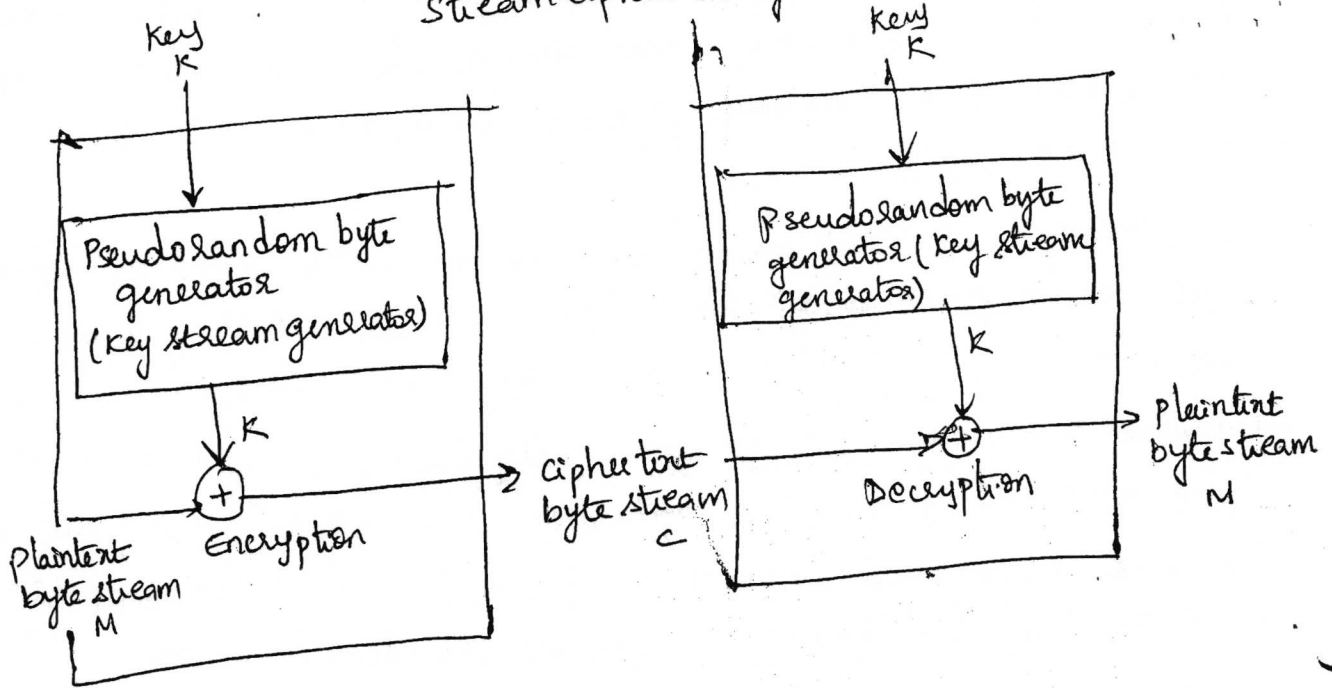 Stream cipher
Key
K
Pseudorandom byte
generator
(Key stream generator)
K
+
Encryption
Plaintext
byte stream
M
ciphertext
byte stream
C
Key
K
Pseudorandom byte
generator (Key stream
generator)
K
+
Decryption
plaintext
byte stream
M